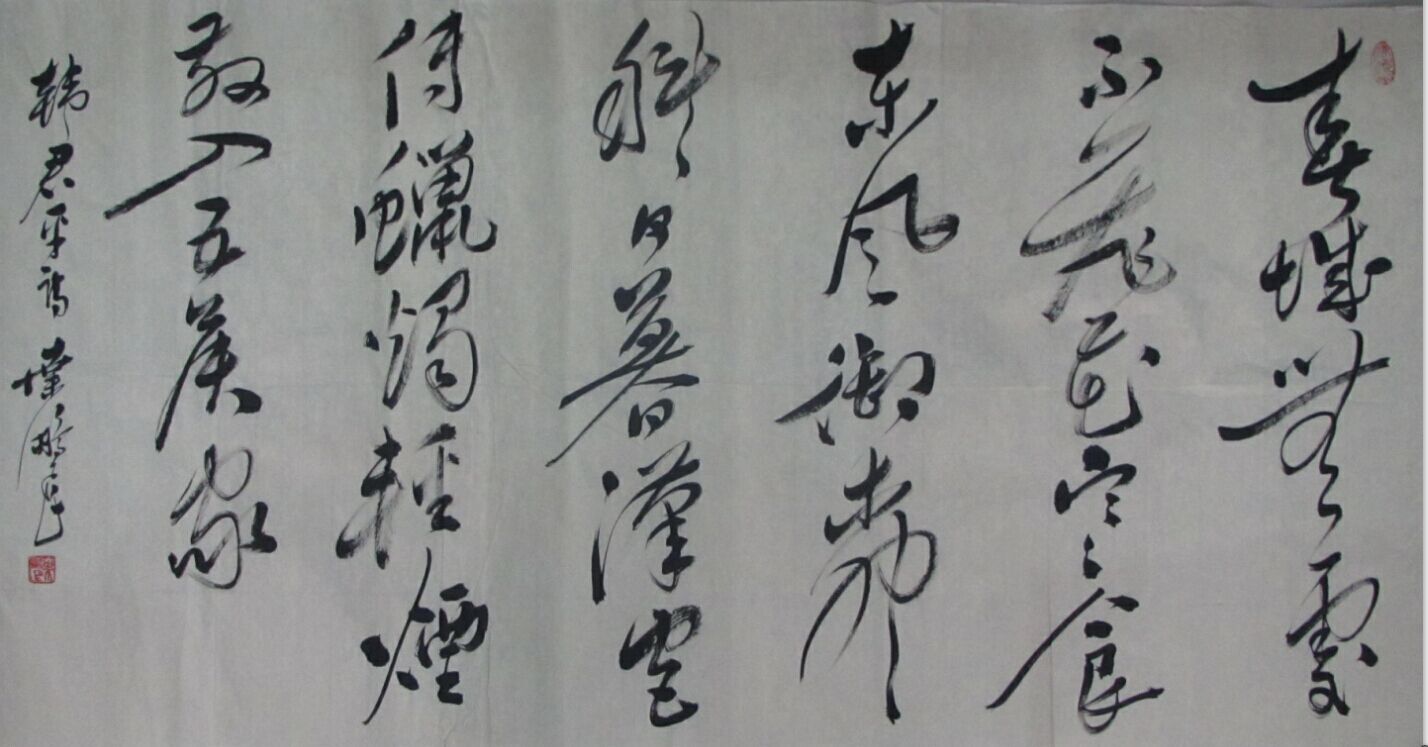 春城無處
不飛花寒食
東風御柳
斜日暮漢宮
傳蠟燭輕煙
散入五侯家
韓君平詩